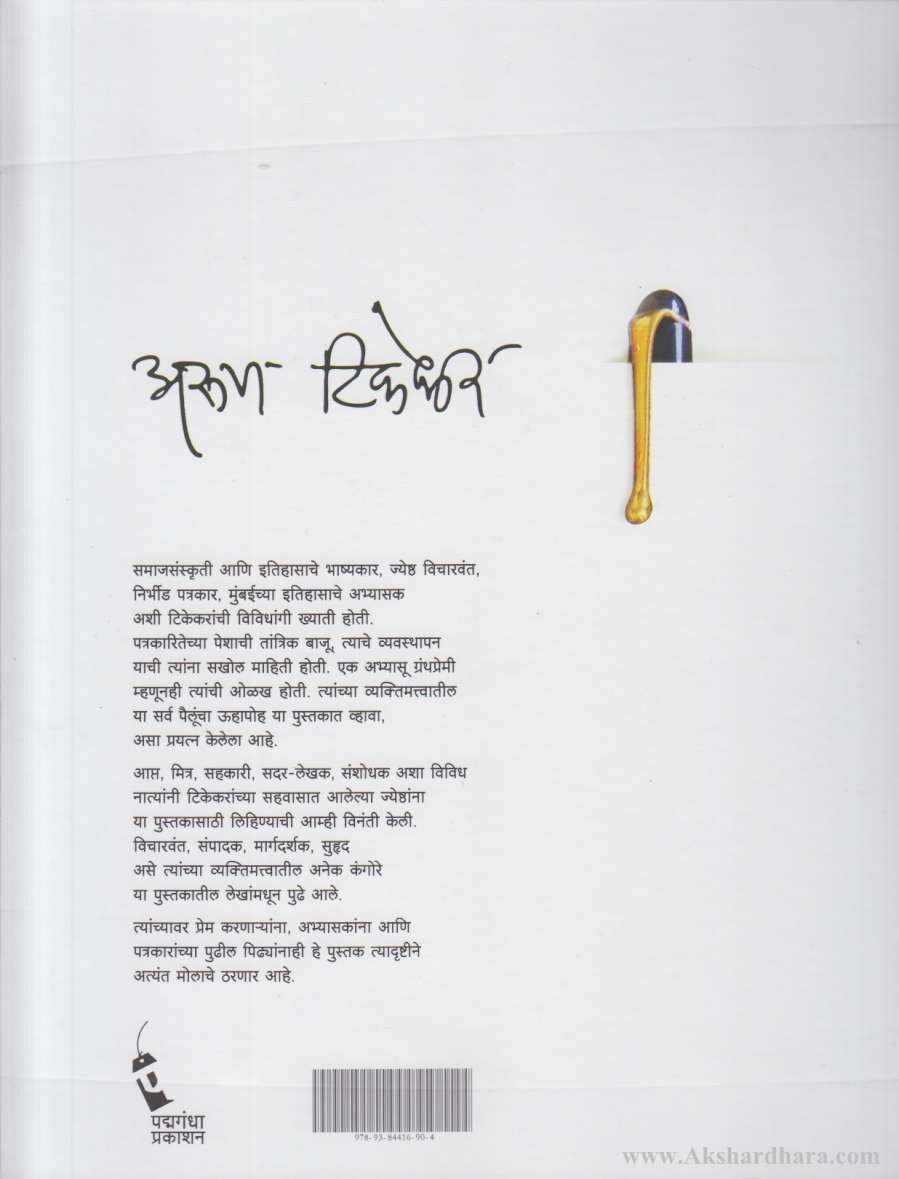 अरुण टिकेकर
समाजसंस्कृती आणि इतिहासाचे भाष्यकार, ज्येष्ठ विचारवंत,
निर्भीड पत्रकार, मुंबईच्या इतिहासाचे अभ्यासक
अशी टिकेकरांची विविधांगी ख्याती होती.
पत्रकारितेच्या पेशाची तांत्रिक बाजू, त्याचे व्यवस्थापन
याची त्यांना सखोल माहिती होती. एक अभ्यासू ग्रंथप्रेमी
म्हणूनही त्यांची ओळख होती. त्यांच्या व्यक्तिमत्त्वातील
या सर्व पैलूंचा ऊहापोह या पुस्तकात व्हावा,
असा प्रयत्न केलेला आहे.
आप्त, मित्र, सहकारी, सदर-लेखक, संशोधक अशा विविध
नात्यांनी टिकेकरांच्या सहवासात आलेल्या ज्येष्ठांना
या पुस्तकासाठी लिहिण्याची आम्ही विनंती केली.
विचारवंत, संपादक, मार्गदर्शक, सुहृद
असे त्यांच्या व्यक्तिमत्त्वातील अनेक कंगोरे
या पुस्तकातील लेखांमधून पुढे आले.
त्यांच्यावर प्रेम करणाऱ्यांना, अभ्यासकांना आणि
पत्रकारांच्या पुढील पिढ्यांनाही हे पुस्तक त्यादृष्टीने
अत्यंत मोलाचे ठरणार आहे.
पद्मगंधा
प्रकाशन
978-93-84416-90-4
www.Akshardhara.com